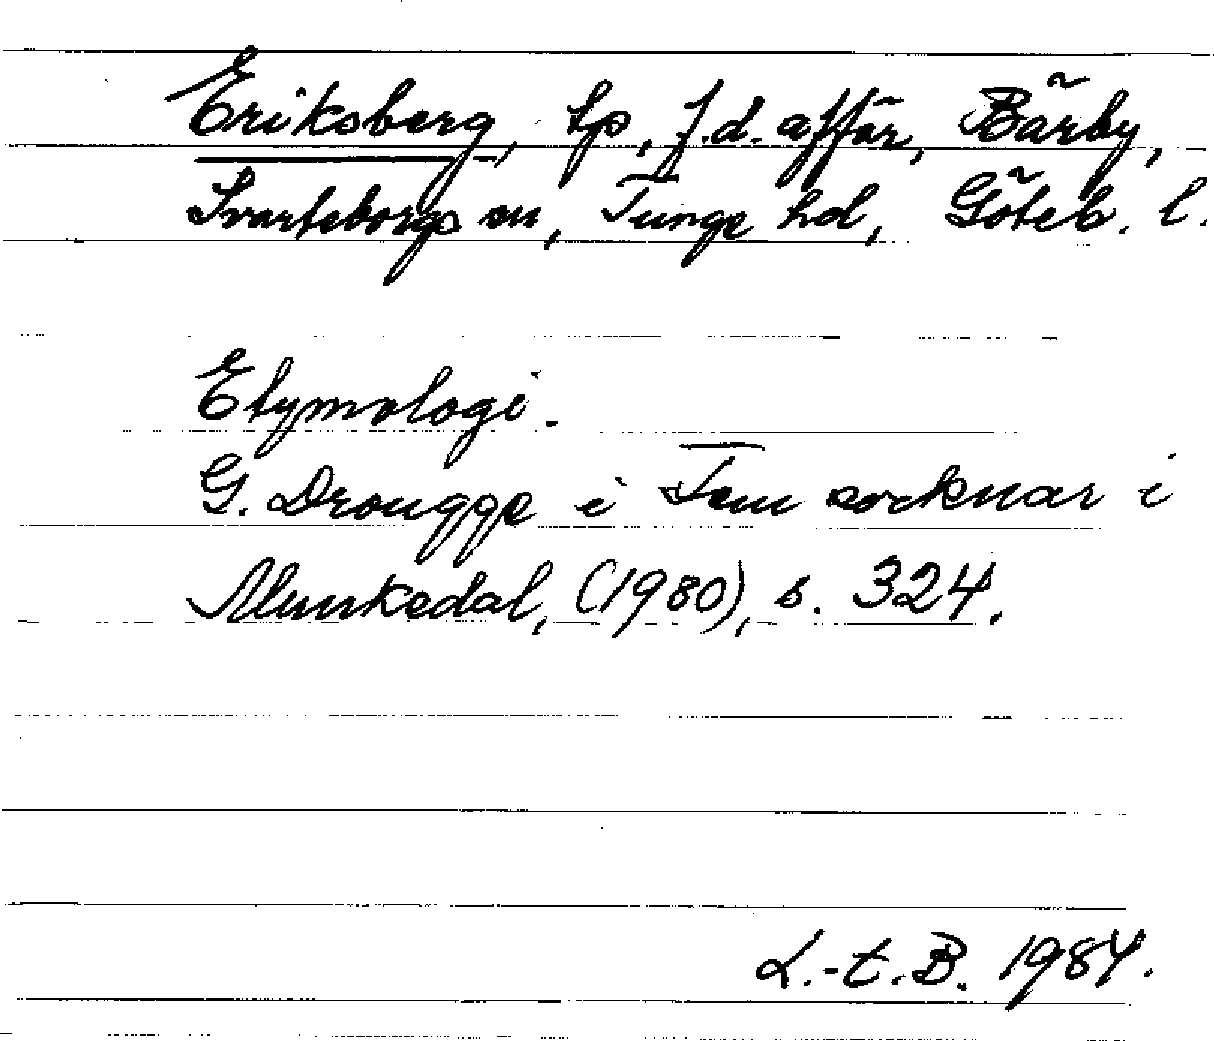 Eriksberg, lp, f.d. affär, Bärby,
Svarteborgs sn, Tunge hd, Göteb. l.
Etymologi.
G. Drougge i Fem socknar i
Munkedal, (1980), s. 324.
L.-E.B. 1984.